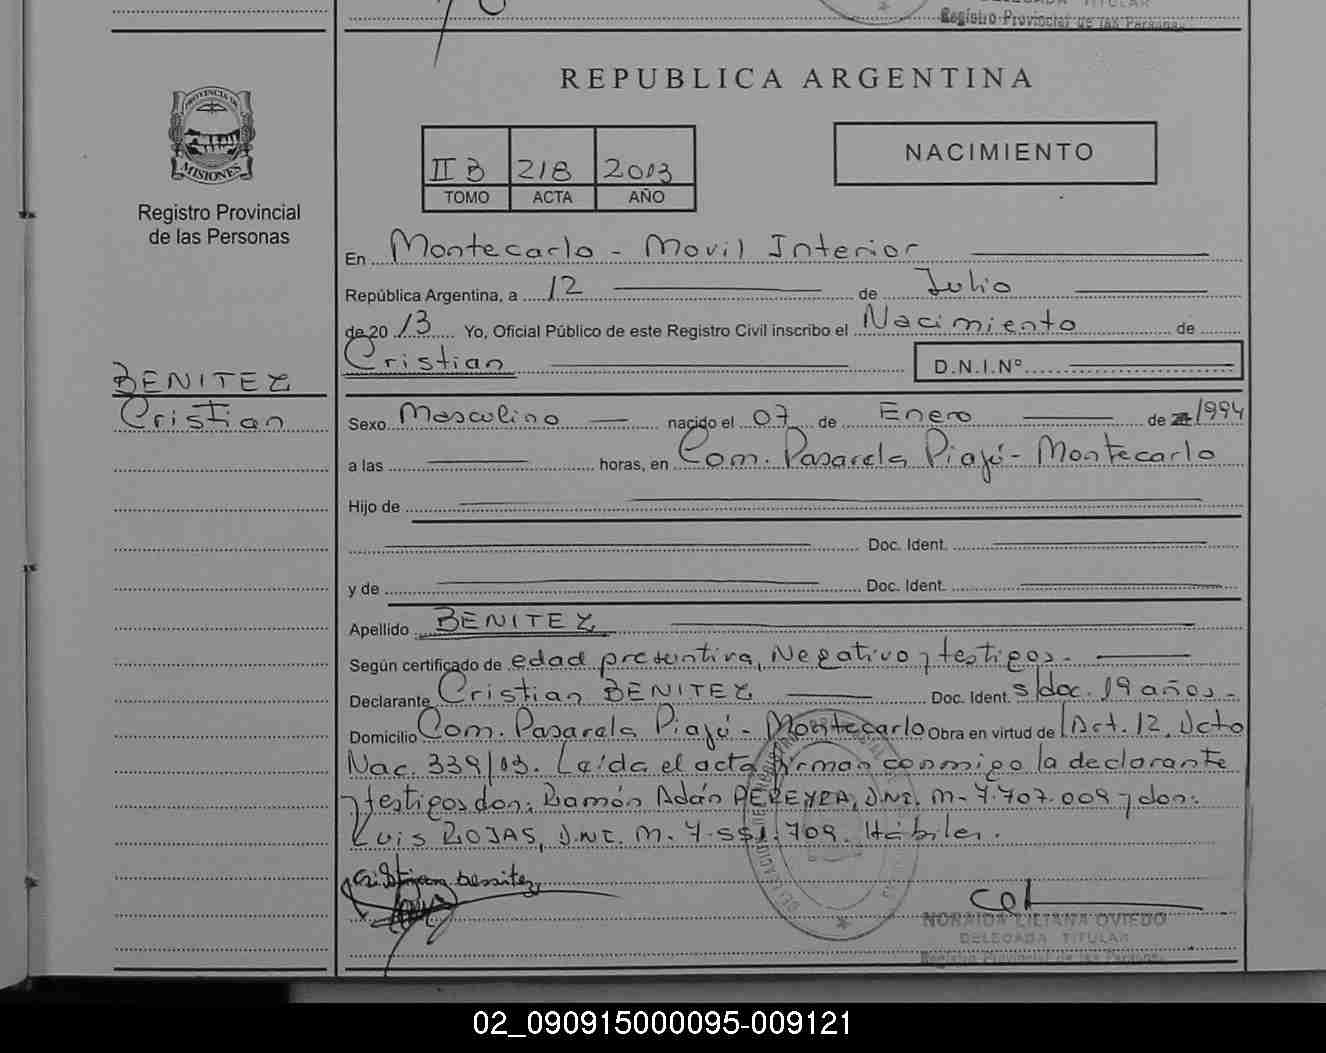 DELEGADA TITULAR
Registro Provincial de las Personas
REPUBLICA ARGENTINA
PROVINCIA DE
MISIONES
Registro Provincial
de las Personas
II B 218 2013
TOMO ACTA AÑO
NACIMIENTO
En Montecarlo - Movil Interior
República Argentina, a 12 de Julio
de 20 13 Yo, Oficial Público de este Registro Civil inscribo el Nacimiento de
Cristian D.N.I.Nº
BENITEZ
Cristian
Sexo Masculino nacido el 07 de Enero de 1994
a las horas, en Com. Pasarela Piajú - Montecarlo
Hijo de
Doc. Ident.
y de Doc. Ident.
Apellido BENITEZ
Según certificado de edad presuntiva, Negativo y testigos.
Declarante Cristian BENITEZ Doc. Ident. s/doc. 19 años.
Domicilio Com. Pasarela Piajú - Montecarlo Obra en virtud de Art. 12, Dcto
Nac. 339/13. Leída el acta firman conmigo la declarante
y testigos don: Ramón Adán PEREYRA, D.N.I. M- 7.707.009 y don:
Luis ROJAS, D.N.I. M- 7.551.709. Hábiles.
Cristian benitez
NORAIDA LILIANA OVIEDO
DELEGADA TITULAR
Registro Provincial de las Personas
02_090915000095-009121